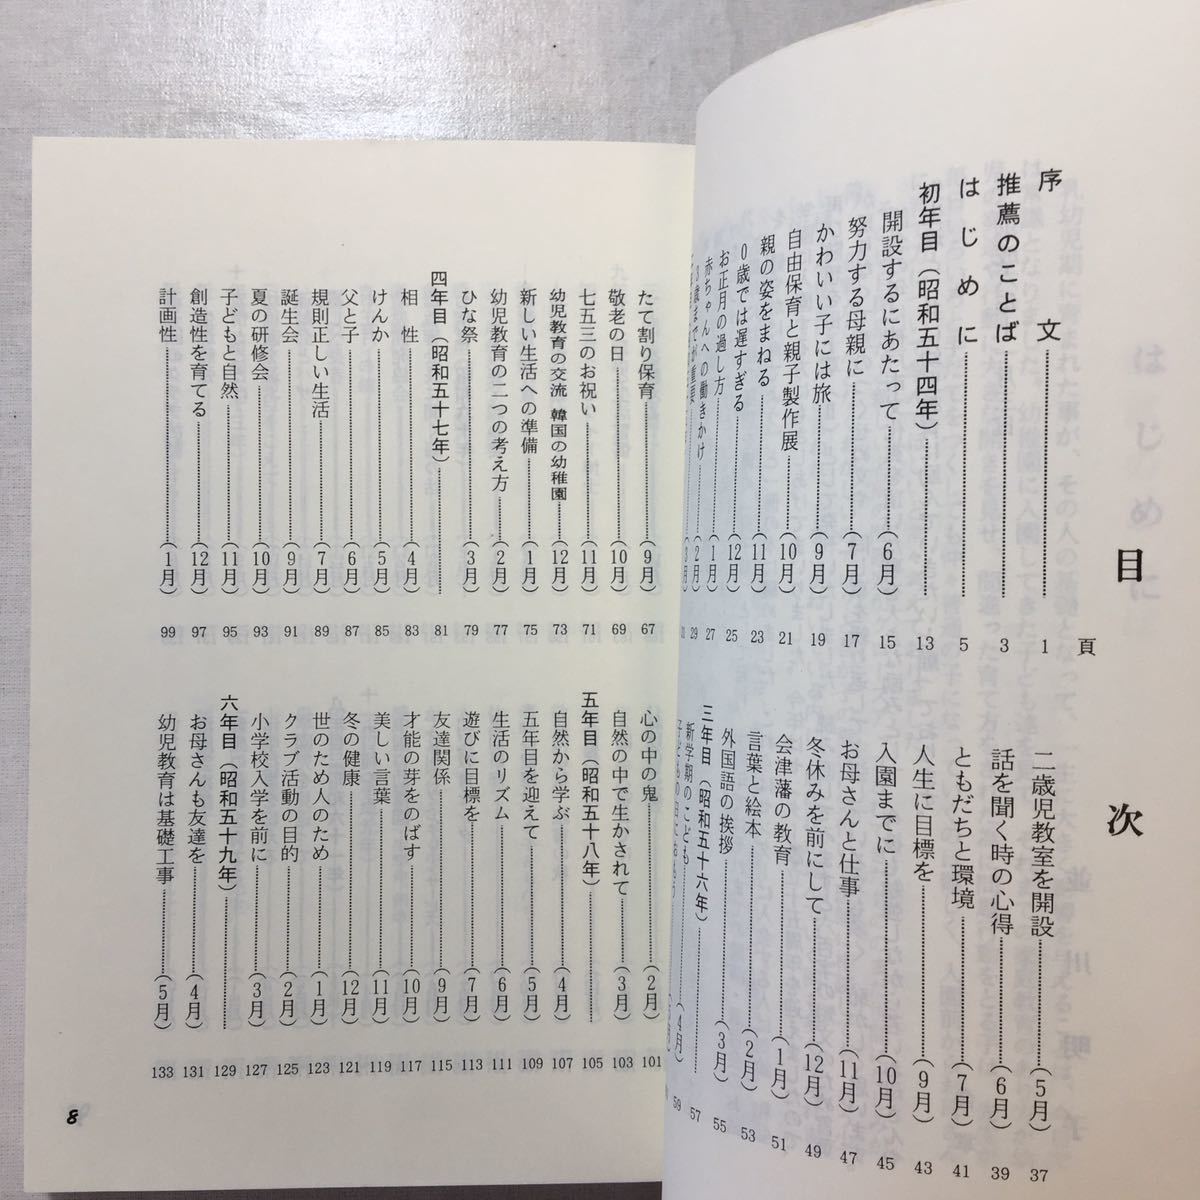 目次
頁
序文……1
推薦のことば……3
はじめに……5
初年目（昭和五十四年）……13
開設するにあたって……（6月）15
努力する母親に……（7月）17
かわいい子には旅……（9月）19
自由保育と親子製作展……（10月）21
親の姿をまねる……（11月）23
0歳では遅すぎる……（12月）25
お正月の過し方……（1月）27
赤ちゃんへの働きかけ……（2月）29
3歳までが重要……（3月）31
二歳児教室を開設……（5月）37
話を聞く時の心得……（6月）39
ともだちと環境……（7月）41
人生に目標を……（9月）43
入園までに……（10月）45
お母さんと仕事……（11月）47
冬休みを前にして……（12月）49
会津藩の教育……（1月）51
言葉と絵本……（2月）53
外国語の挨拶……（3月）55
三年目（昭和五十六年）……57
新学期のこども……（4月）59
子どもの日におもう
たて割り保育……（9月）67
敬老の日……（10月）69
七五三のお祝い……（11月）71
幼児教育の交流 韓国の幼稚園……（12月）73
新しい生活への準備……（1月）75
幼児教育の二つの考え方……（2月）77
ひな祭……（3月）79
四年目（昭和五十七年）……81
相性……（4月）83
けんか……（5月）85
父と子……（6月）87
規則正しい生活……（7月）89
誕生会……（9月）91
夏の研修会……（10月）93
子どもと自然……（11月）95
創造性を育てる……（12月）97
計画性……（1月）99
心の中の鬼……（2月）101
自然の中で生かされて……（3月）103
五年目（昭和五十八年）……105
自然から学ぶ……（4月）107
五年目を迎えて……（5月）109
生活のリズム……（6月）111
遊びに目標を……（7月）113
友達関係……（9月）115
才能の芽をのばす……（10月）117
美しい言葉……（11月）119
冬の健康……（12月）121
世のため人のため……（1月）123
クラブ活動の目的……（2月）125
小学校入学を前に……（3月）127
六年目（昭和五十九年）……129
お母さんも友達を……（4月）131
幼児教育は基礎工事……（5月）133
8